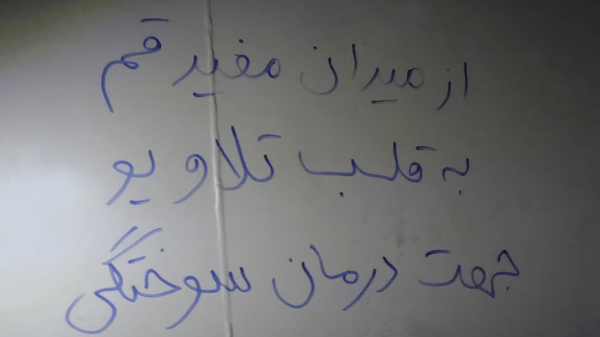 از میدان مفید قم
به قلب تلاویو
جهت درمان سوختگی